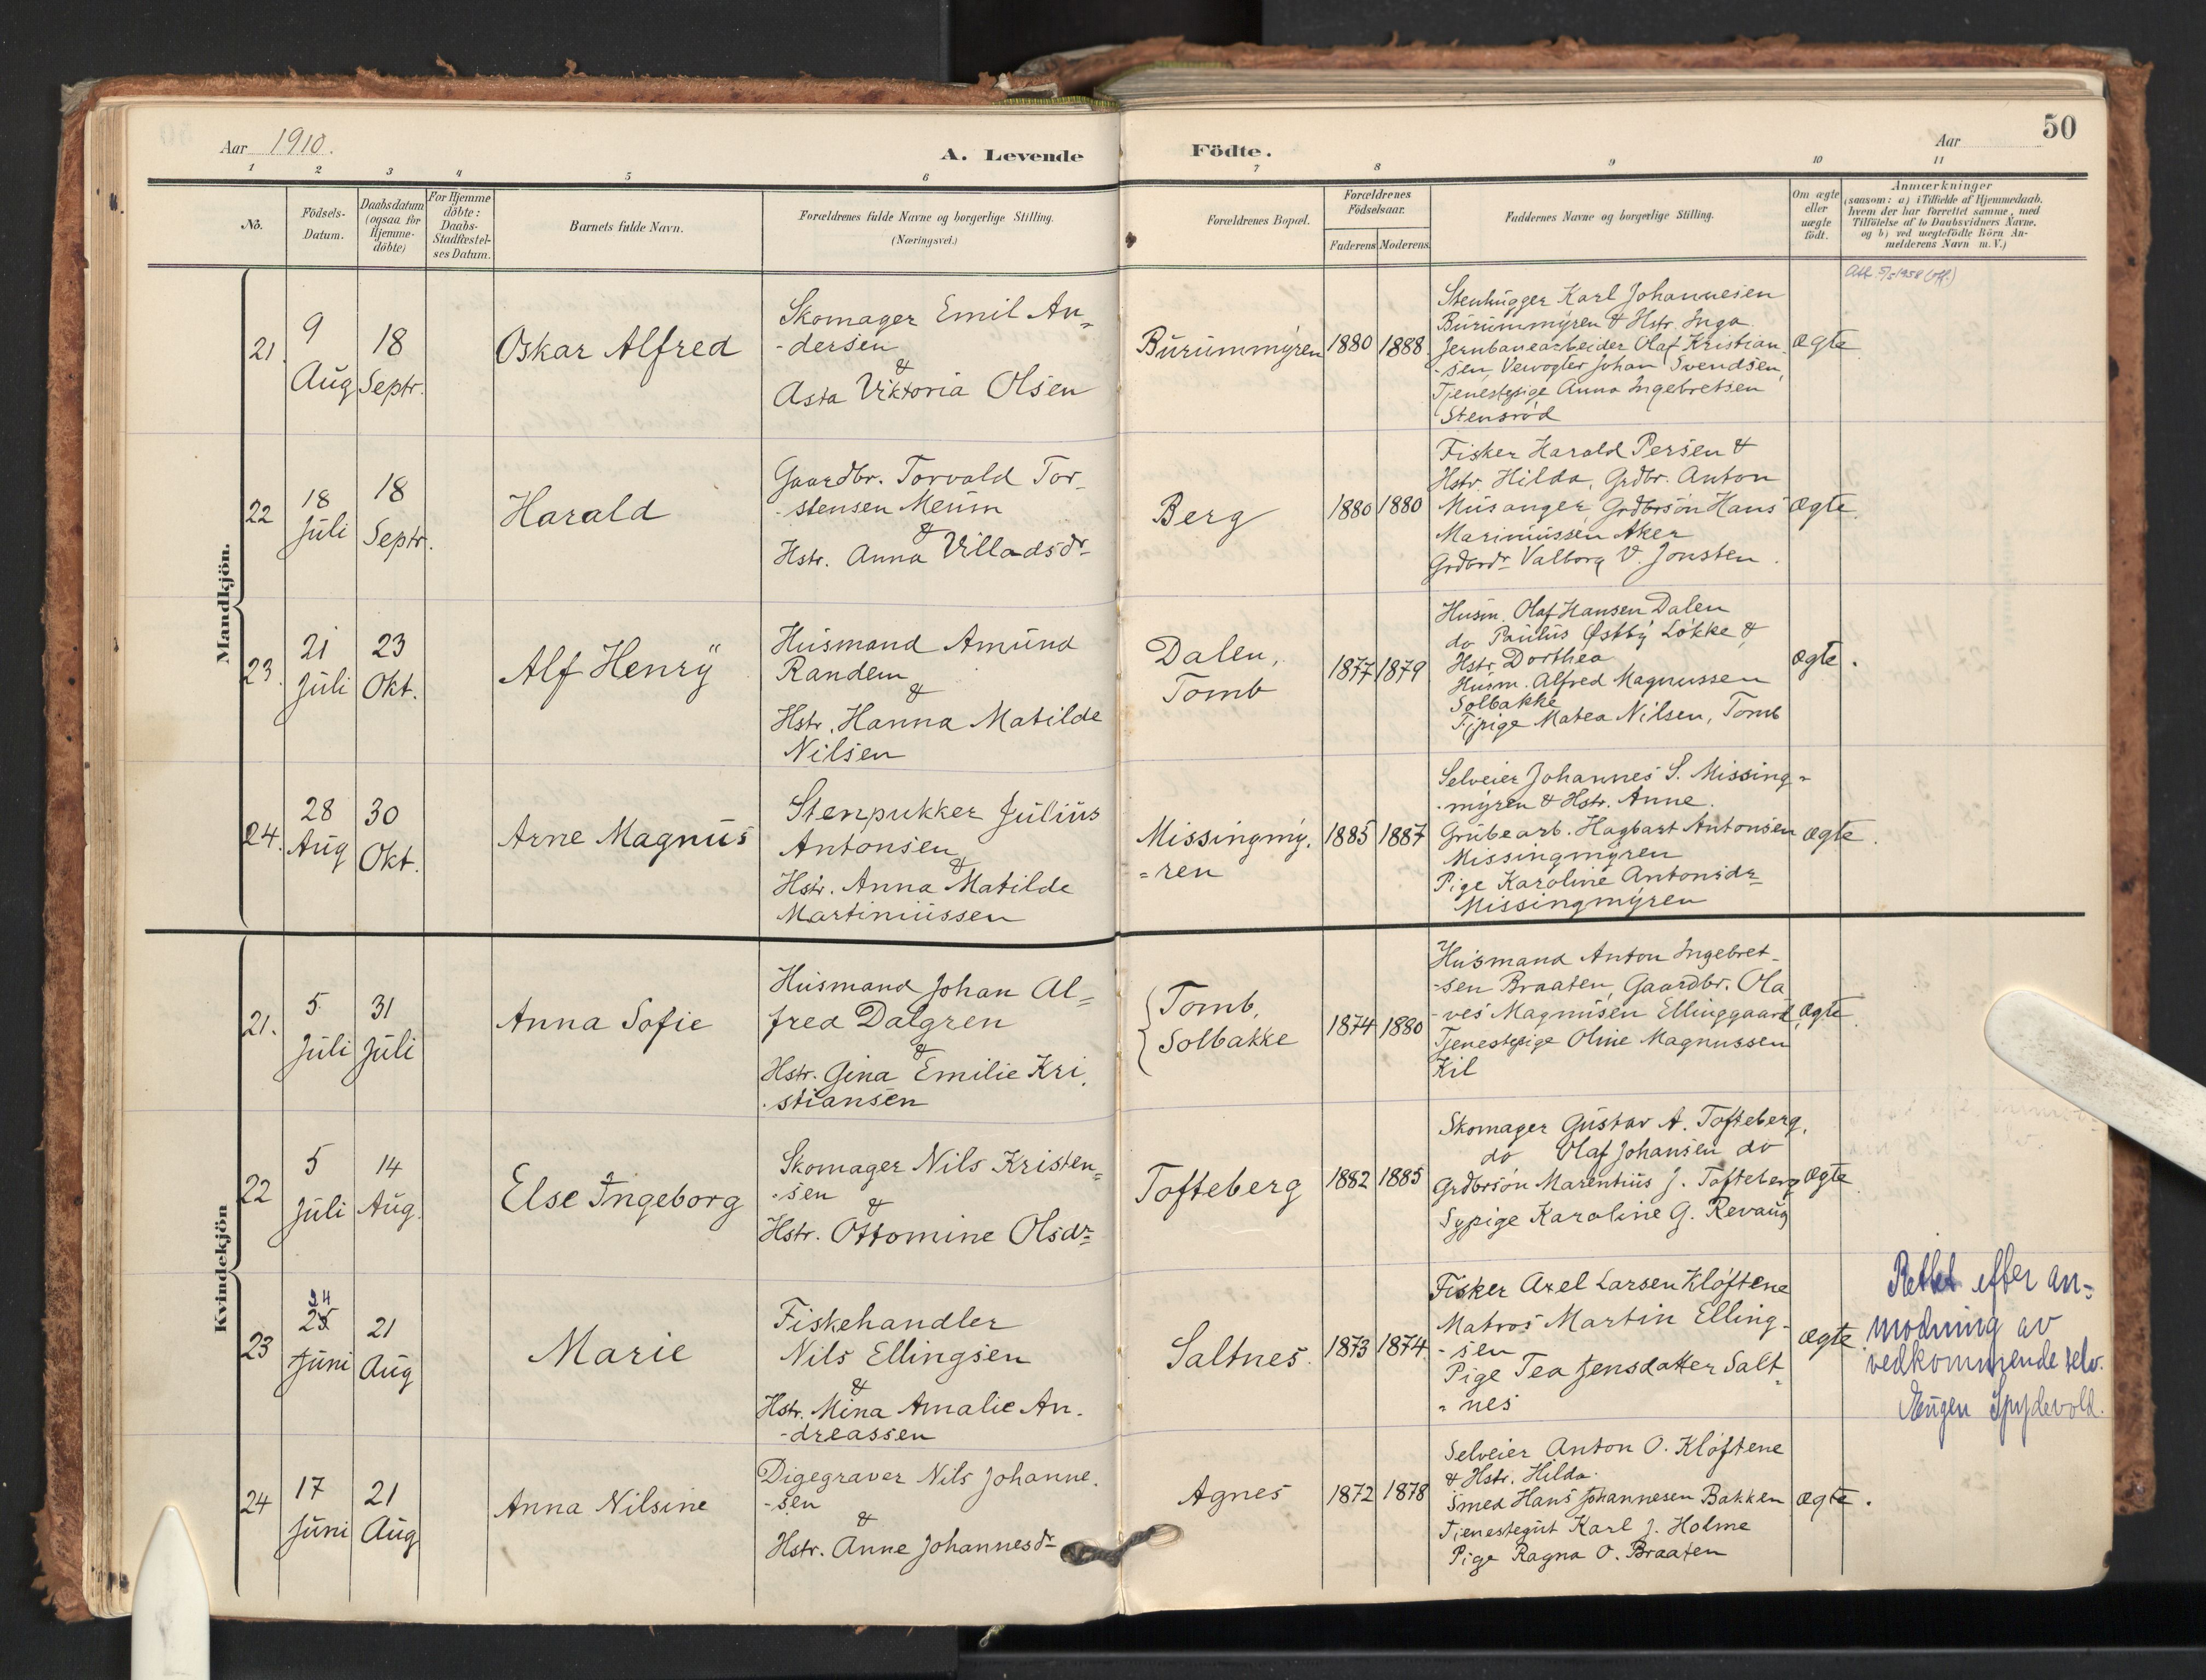 50
Aar 1910.
A. Levende
Födte.
Aar
1 2 3 4 5 6 7 8 9 10 11
No.
Födsels-
Datum.
Daabsdatum
(ogsaa for
Hjemme-
döbte)
For Hjemme
döbte:
Daabs-
Stadfæstel-
ses Datum.
Barnets fulde Navn.
Forældrenes fulde Navne og borgerlige Stilling.
(Næringsvei.)
Forældrenes Bopæl.
Forældrenes
Födselsaar.
Faderens Moderens
Faddernes Navne og borgerlige Stilling.
Om ægte
eller
uægte
födt.
Anmærkninger
(saasom: a) i Tilfælde af Hjemmedaab,
hvem der har forrettet samme, med
Tilföielse af to Daabsvidners Navne,
og b) ved uægtefödte Börn An-
melderens Navn m. V.)
Mandkjön.
21.
9
Aug
18
Septr.
Oskar Alfred
Skomager Emil An-
-dersen
&
Asta Viktoria Olsen
Burummyren
1880
1888
Stenhugger Karl Johannesen
Burummyren & Hstr. Inga
Jernbanearbeider Olaf Kristian-
-sen, Veivogter Johan Svendsen,
Tjenestepige Anna Ingebretsen
Stensröd
ægte
Att 5/5 1958 (off.)
22
18
Juli
18
Septr.
Harald
Gaardbr. Torvald Tor-
-stensen Meum
&
Hstr. Anna Villadsdr
Berg
1880
1880
Fisker Harald Persen &
Hstr. Hilda, Grdbr. Anton
Musanger, Grdbrsön Hans
Marinussen Aker
Grdbrdr Valborg V. Jonsten.
ægte.
23.
21
Juli
23
Okt.
Alf Henry
Husmand Amund
Randem
&
Hstr. Hanna Matilde
Nilsen
Dalen,
Tomb
1877
1879
Husm. Olaf Hansen Dalen
do Paulus Østby Lökke &
Hstr. Dorthea
Husm. Alfred Magnussen
Solbakke
Tjpige Matea Nilsen, Tomb
ægte.
24.
28
Aug
30
Okt.
Arne Magnus
Stenpukker Julius
Antonsen
&
Hstr. Anna Matilde
Martinussen
Missingmy-
=ren
1885
1887
Selveier Johannes S. Missing-
-myren & Hstr. Anne.
Grubearb. Hagbart Antonsen
Missingmyren
Pige Karoline Antonsdr
Missingmyren
ægte.
Kvindekjön
21.
5
Juli
31
Juli
Anna Sofie
Husmand Johan Al=
fred Dalgren
&
Hstr. Gina Emilie Kri-
-stiansen
Tomb,
Solbakke
1874
1880
Husmand Anton Ingebret-
-sen Braaten, Gaardbr. Ola
-ves Magnusen Ellinggaard,
Tjenestepige Oline Magnussen
Kil
ægte.
22
5
Juli
14
Aug.
Else Ingeborg
Skomager Nils Kristen=
-sen
&
Hstr. Ottomine Olsdr
Tofteberg
1882
1885
Skomager Gustav A. Tofteberg,
do Olaf Johansen do
Grdbrsön Marentius J. Tofteberg
Sypige Karoline G. Revaug
ægte.
23
24
25
Juni
21
Aug
Marie
Fiskehandler
Nils Ellingsen
&
Hstr. Mina Amalie An-
-dreassen
Saltnes.
1873
1874
Fisker Axel Larsen Klöftene
Matros Martin Elling-
-sen
Pige Tea Jensdatter Salt-
=nes
ægte.
Rettet efter an-
modning av
vedkommende selv.
Eugen Spydevold.
24
17
Juni
21
Aug
Anna Nilsine
Digegraver Nils Johanne-
-sen
&
Hstr. Anne Johannesdr
Agnes
1872
1878
Selveier Anton O. Klöftene
& Hstr. Hilda.
Smed Hans Johannesen Bakken
Tjenestegut Karl J. Holme
Pige Ragna O. Braaten
ægte.